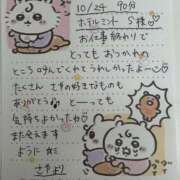 10/24 90分
ホテルミント S様♡
お仕事終わりで
とっても おつかれの
ところ 呼んでくれてうれしかったよ〜♡
たくさん さきの好きなもの
ありがとう とーっても
気持ちよかったね♡
また会えます
ように
さきより